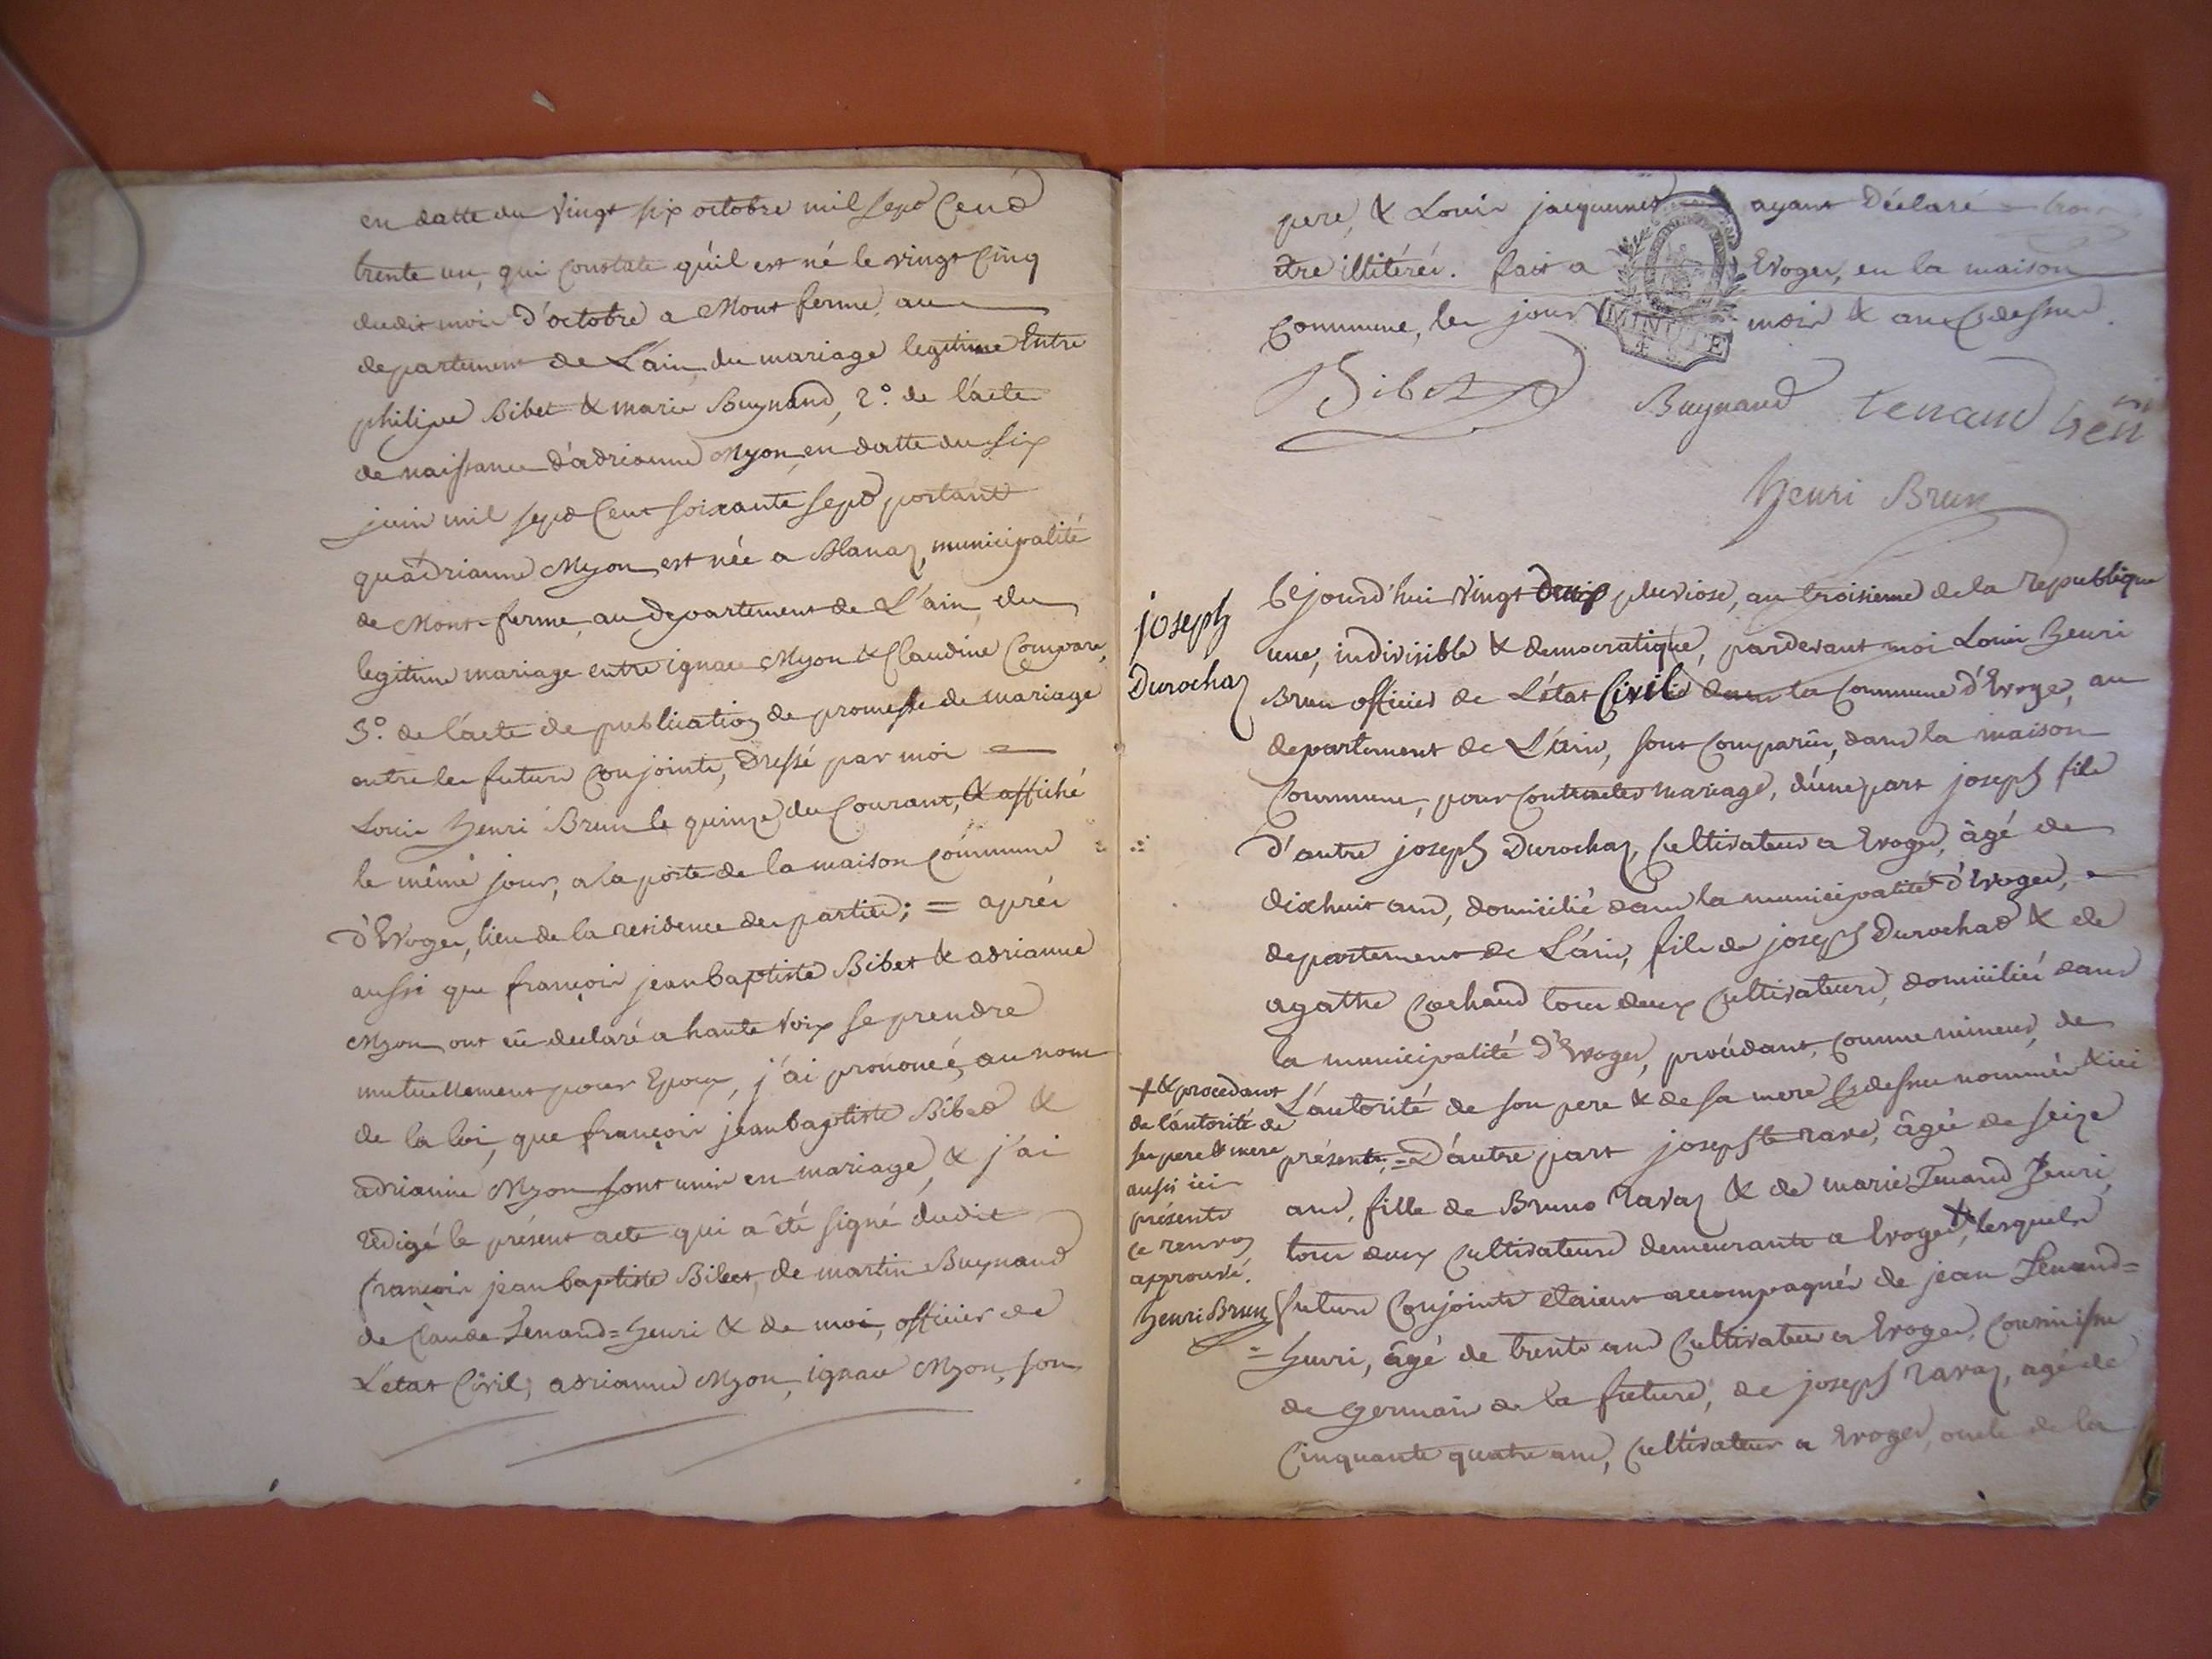 en datte du vingt six octobre mil sept Cend
trente un, qui constate qu'il est né le vingt Cinq
dudit mois d'octobre a Mont ferme au
departement de L'ain, du mariage legitime Entre
philipe Bibet & marie Buynand, 2° de l'acte
de naissance d'adrianne Myon en datte du six
juin mil sept Cent soixante sept portant
qu'adrianne Myon est née a Blanaz, municipalité
de Mont-ferme, au departement de L'ain, du
legitime mariage entre ignace Myon & Claudine Compare,
3° de l'acte de publication de promesse de mariage
entre les futurs Conjoints, dressé par moi =
Louis henri Brun le quinze du Courant, & affiché
le même jour, a la porte de la maison Commune
d'Evoges, lieu de la residence des parties; = aprés
aussi que françois jean baptiste Bibet & adrianne
Myon ont eu declaré a haute voix se prendre
mutuellement pour Epoux, j'ai prononcé, au nom
de la loi, que françois jean baptiste Bibet &
adrianne Myon sont unis en mariage, & j'ai
redigé le présent acte qui a été signé dudit
francois jean baptiste Bibet, de martin Buynand
de Claude Tenand=henri & de moi, officier de
L'etat Civil, adrianne Myon, ignace Myon, son
pere, & Louis jacquemet ayant Déclaré
etre illitérés. fait a Evoges, en la maison
Commune, les jour mois & an Cidessus.
MINUTE
Bibet
Buynand tenand hen
henri Brun
joseph
Durochaz
Cejourd'hui vingt deux pluviose, an troisieme de la Republique
une, indivisible & democratique, pardevant moi Louis henri
Brun officier de L'état Civil dans la Commune d'Evoges, au
departement de L'Ain, sont Comparus, dans la maison
Commune, pour Contracter mariage, d'une part joseph fils
d'autre joseph Durochaz, Cultivateur a Evoges, âgé de
dixhuit ans, domicilié dans la municipalité d'Evoges,
departement de L'ain, fils de joseph Durochad & de
agathe Cochand tous deux Cultivateurs, domiciliés dans
la municipalité d'Evoges, procédant, comme mineur, de
L'autorité de son pere & de sa mere Cidessus nommés & ici
présents, = D'autre part josephte rave, âgée de seize
ans, fille de Bruno ravaz & de marie Tenand henri,
tous deux Cultivateurs demeurants a Evoges +, lesquels
futurs Conjoints etaient accompagnés de jean Tenand=
=henri, âgé de trente ans Cultivateur a Evoges, Cousin issu
de germain de la future, de joseph ravaz, agé de
Cinquante quatre ans, Cultivateur a Evoges, oncle de la
+ & procedant
de l'autorité de
ses pere & mere
aussi ici
présents
Ce renvoy
approuvé.
henri Brun